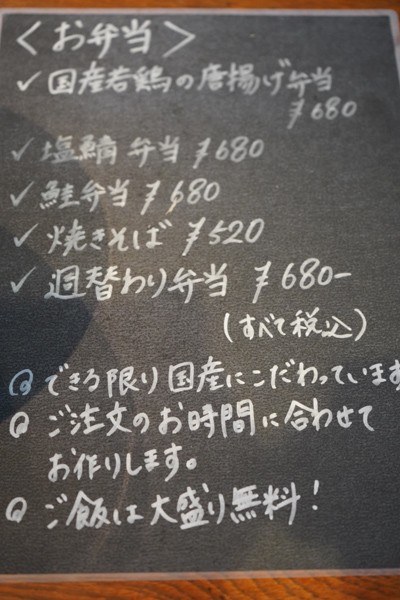 ＜お弁当＞
✓国産若鶏の唐揚げ弁当
¥680
✓塩鯖弁当 ¥680
✓鮭弁当 ¥680
✓焼きそば ¥520
✓週替わり弁当 ¥680-
(すべて税込)
◎できる限り国産にこだわっています
◎ご注文のお時間に合わせて
お作りします。
◎ご飯は大盛り無料！